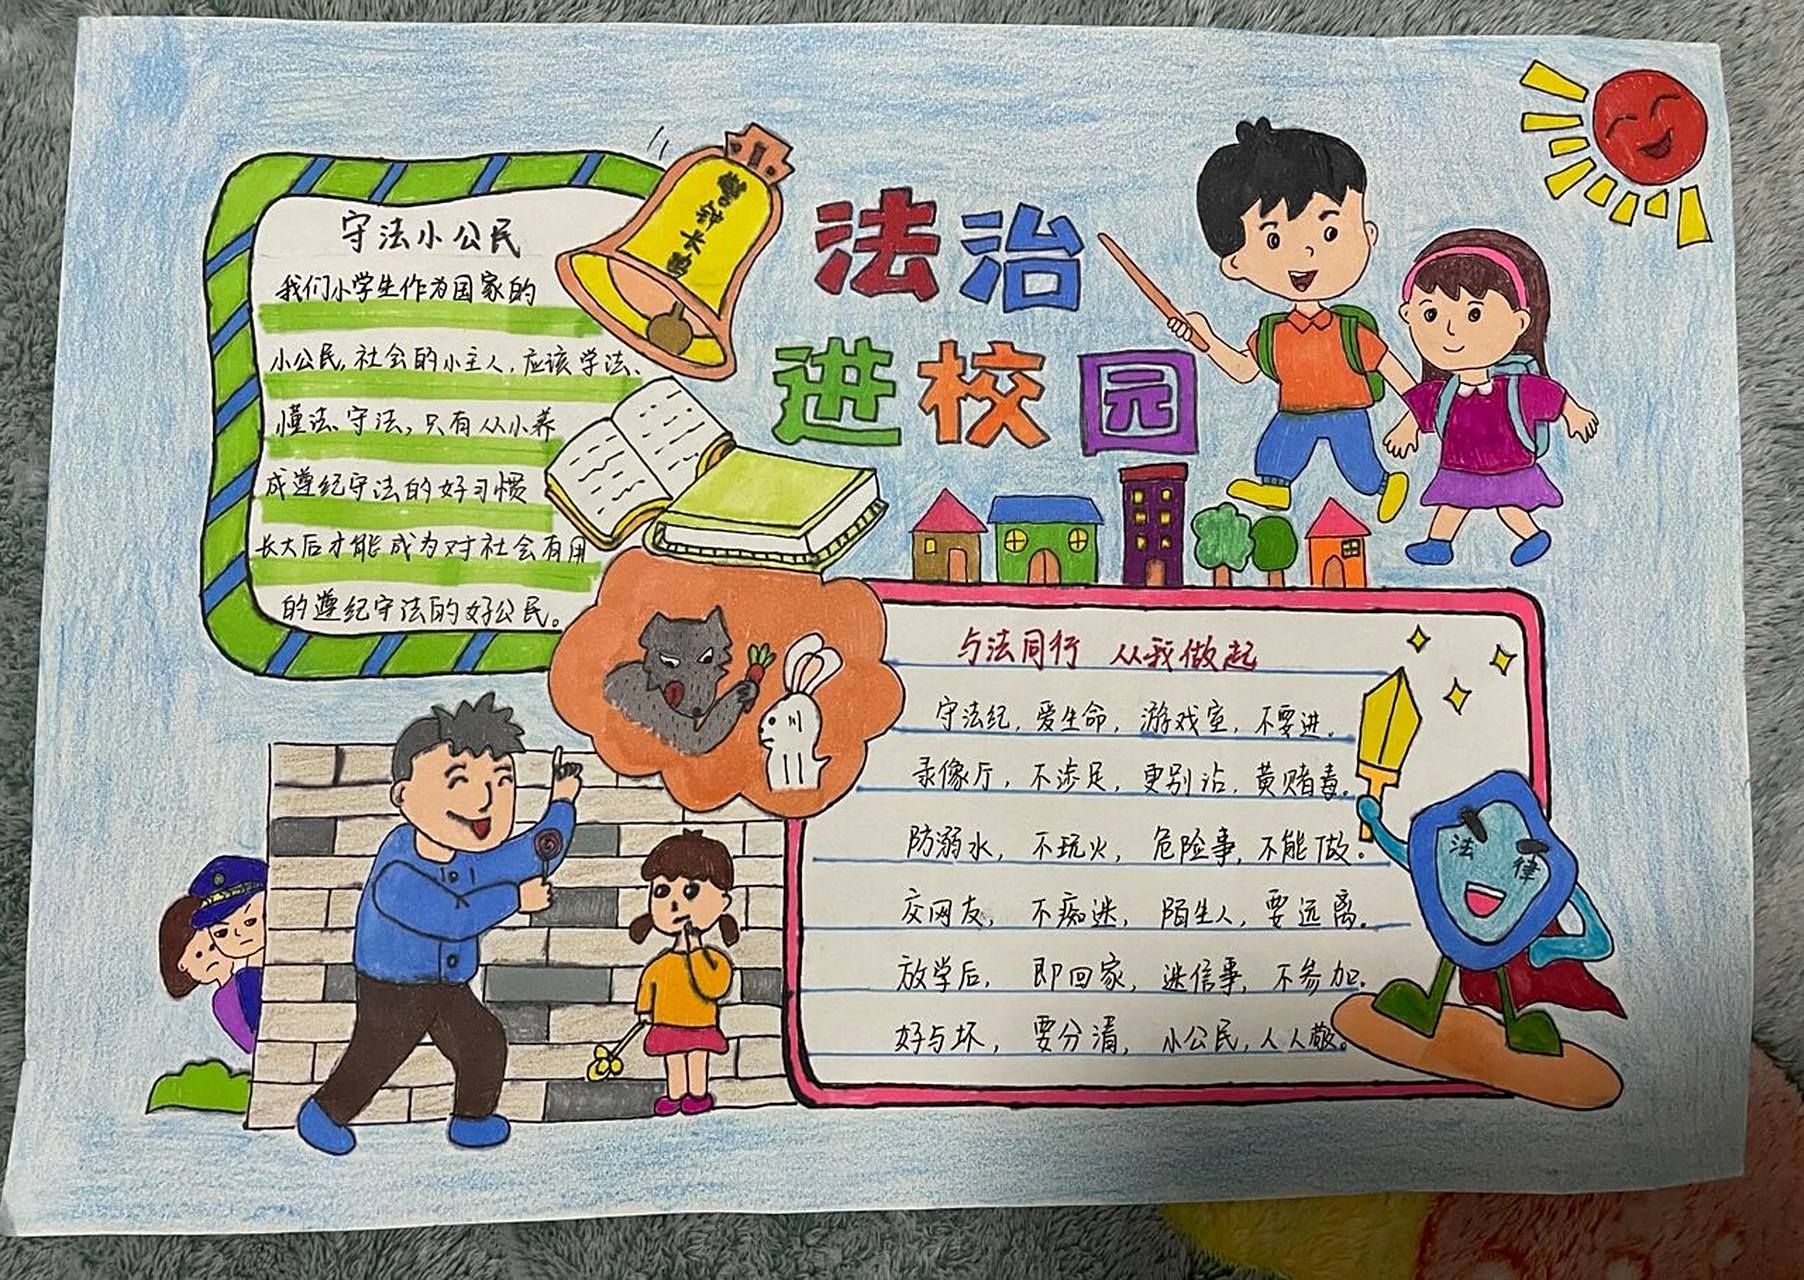 守法小公民
我们小学生作为国家的
小公民,社会的小主人,应该学法、
懂法、守法,只有从小养
成遵纪守法的好习惯
长大后才能成为对社会有用
的遵纪守法的好公民。
警钟长鸣
法治
进校园
与法同行 从我做起
守法纪,爱生命,游戏室,不要进。
录像厅,不涉足,更别沾,黄赌毒。
防溺水,不玩火,危险事,不能做。
交网友,不痴迷,陌生人,要远离。
放学后,即回家,迷信事,不参加。
好与坏,要分清,小公民,人人敬。
法律